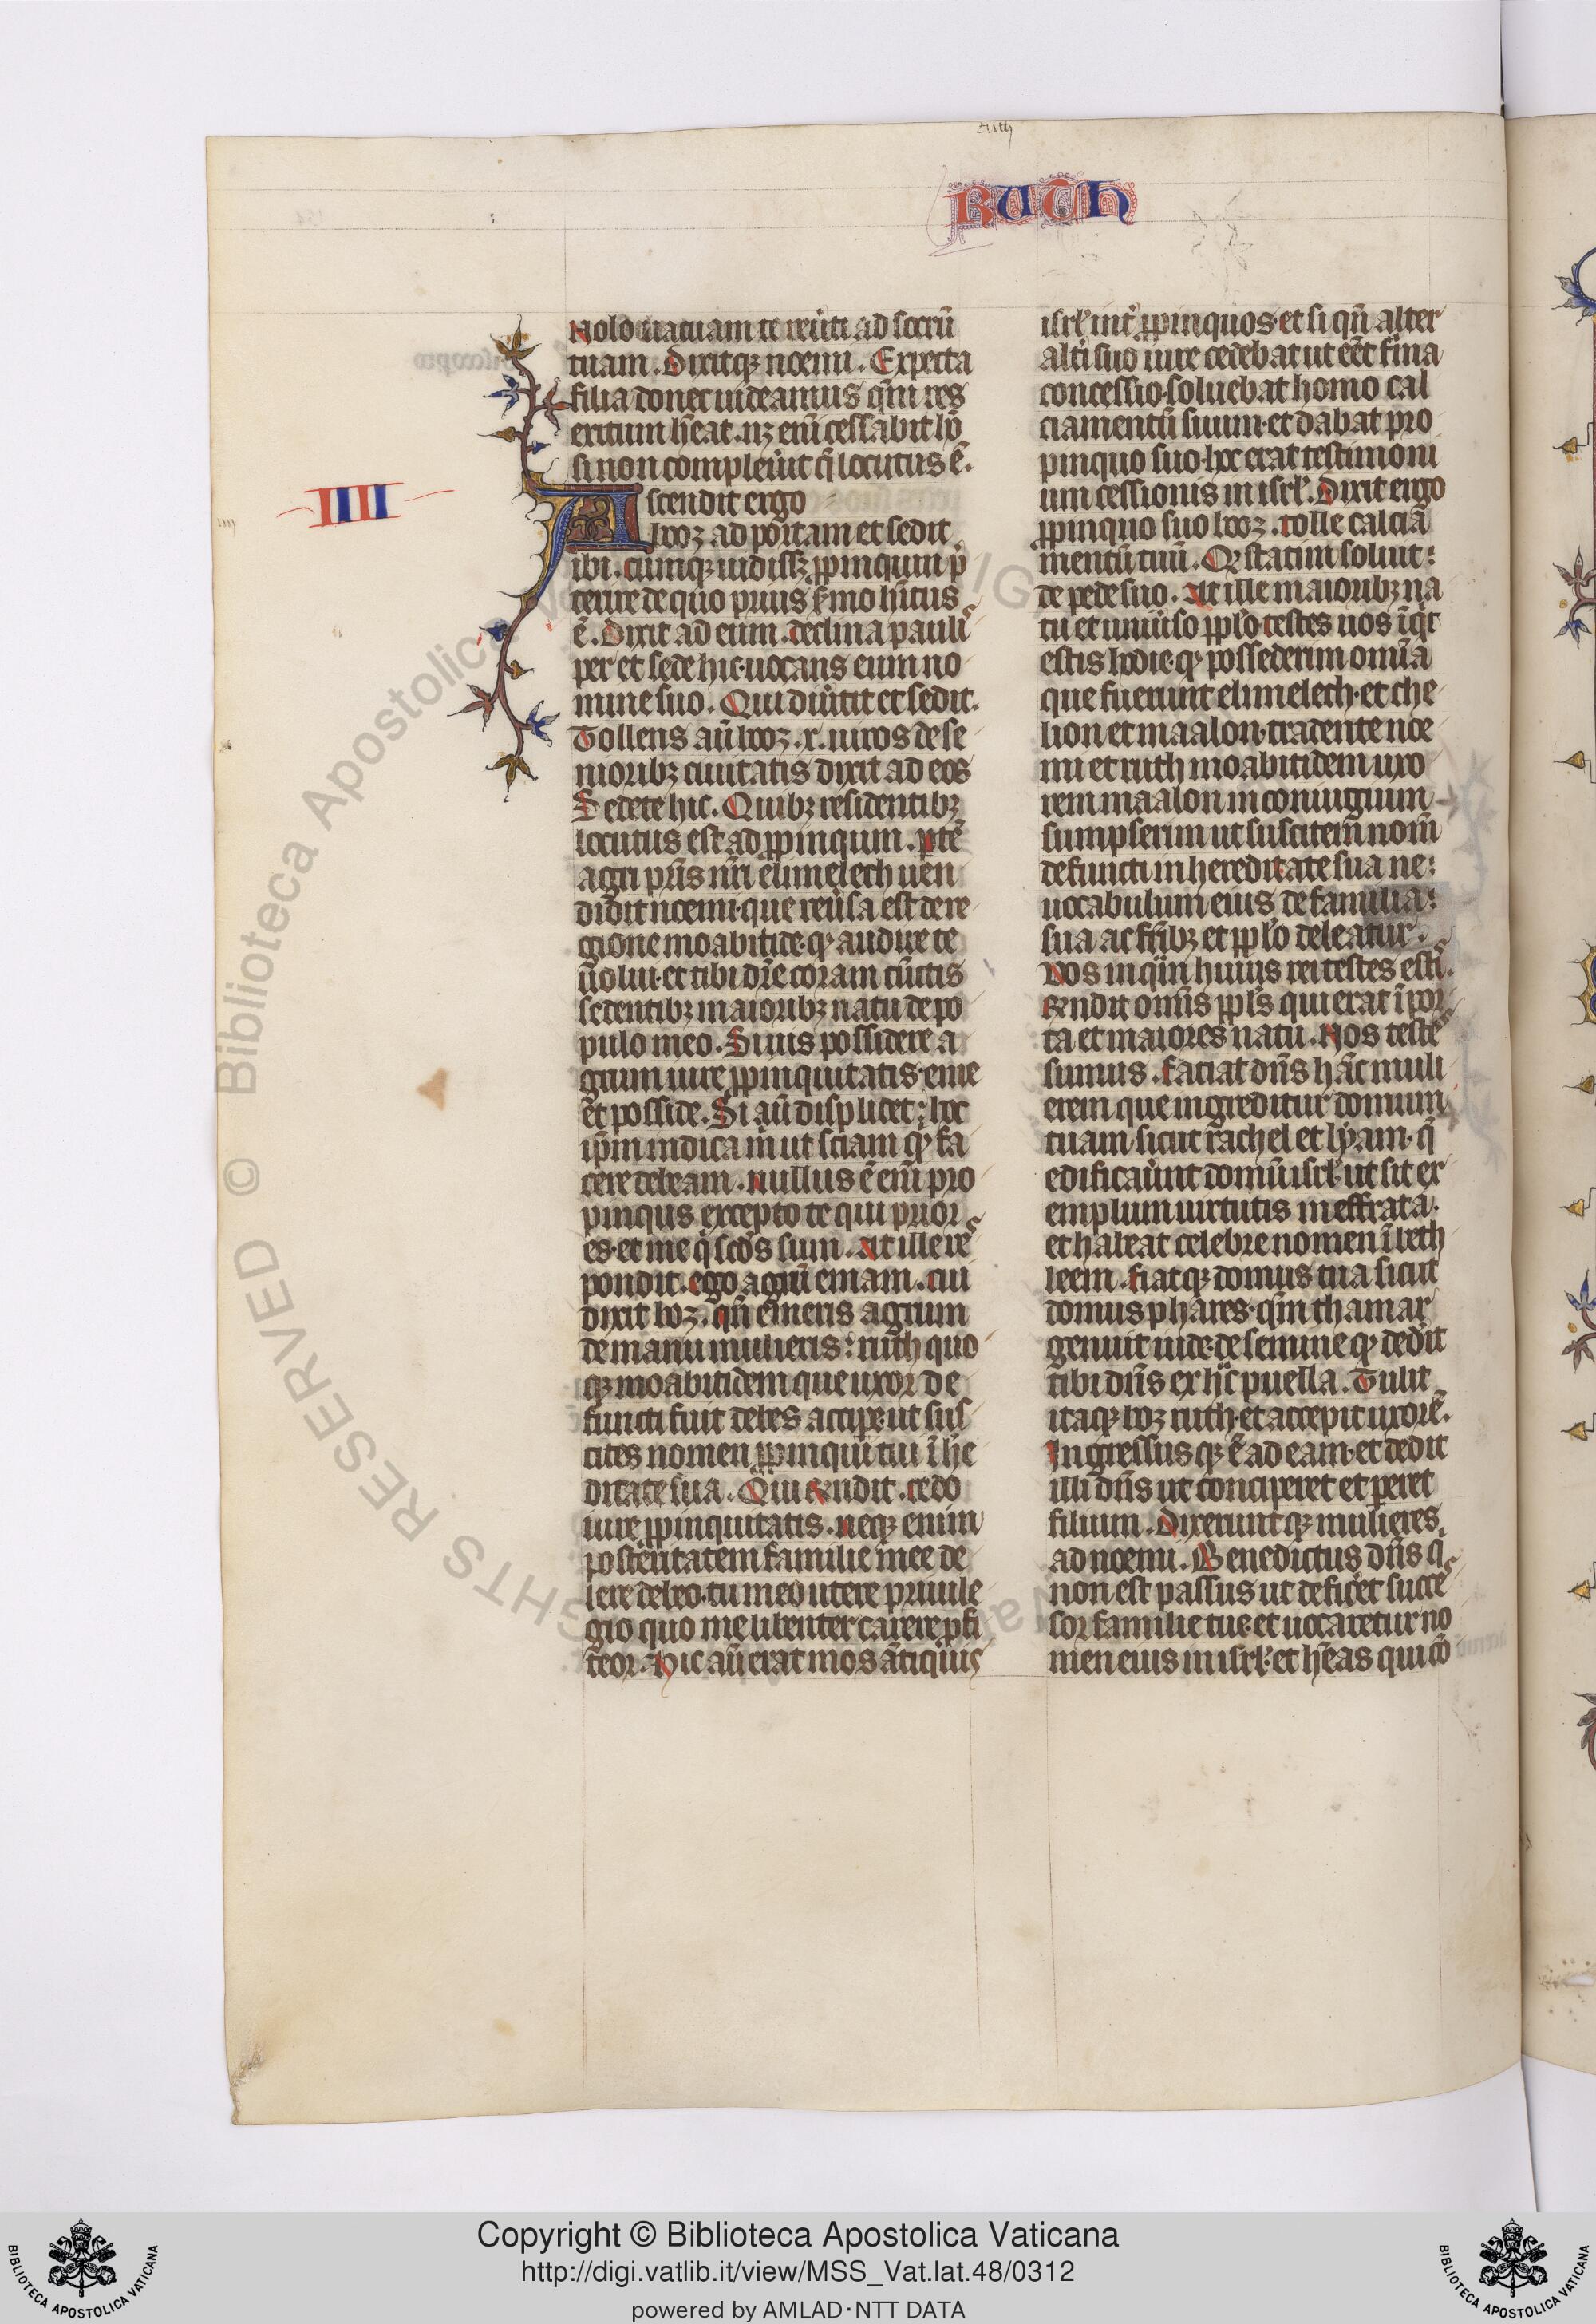 ruth
RUTH
Nolo uacuam te reu̓ti ad socrū
tuam. Dixitqꝫ noemi. Expecta
filia donec uideamus qͣm res
exitum h̄eat. nꝫ enī cessabit hō
si non compleu̓it q̄ locutus ē.
IIII
Ascendit ergo
booz ad portam et sedit
ibi. cumqꝫ uidissꝫ ꝓpinquū p̄
terire de quo prius s̓mo h̄itus
ē. Dixit ad eum. declina pauli
per et sede hic. uocans eum no
mine suo. Qui diu̓tit et sedit.
Tollens aū booz .x. uiros de se
nioribꝫ ciuitatis dixit ad eos
Sedete hic. Quibꝫ residentibꝫ
locutus est ad ꝓpinqum. ꝑtē
agri pr̄is nr̄i elimelech uen
didit noemi. que reu̓sa est de re
gione moabitide. qͦ audire te
uolui. et tibi dr̄e coram cūctis
sedentibꝫ maioribꝫ natu de po
pulo meo. Si uis possidere a
grum iure ꝓpinquitatis. eme
et posside. Si aū displicet: hoc
ip̄m indica m̓ ut sciam qͦ fa
cere debeam. nullus ē enī pro
pinqus excepto te qui prior
es. et me q̓ scd̄s sum. At ille res
pondit. ego agrū emam. cui
dixit boz. qn̄ emeris agrum
de manu mulieris: ruth quo
qꝫ moabitidem que uxor de
functi fuit debes accipe. ut sus
cites nomen ꝓpinqui tui ī he
ditate sua. Qui r̄ndit. cedo
iure ꝓpinquitatis. neqꝫ enim
posteritatem familie mee de
lere debeo. tu meo utere priuile
gio quo me libenter carere ꝓfi
teor. Hic aū erat mos ātiqͥtus
isrl̓ int̓ ꝓpinquos. et si qn̄ alter
alt̓i suo iure cedebat ut eēt firma
concessio. soluebat homo cal
ciamentū suum. et dabat pro
pinquo suo. hoc erat testimoni
um cessionis in isrl̓. Dixit ergo
ꝓpinquo suo booz. tolle calcia
mentū tuū. Qͦ statim soluit:
de pede suo. At ille maioribꝫ na
tu et uniu̓so pplo̓ testes uos īqͥt
estis hodie. qͦ possederim omīa
que fuerunt elimelech. et che
lion et maalon. tradente noe
mi et ruth moabitidem uxo
rem maalon in coniugium
sumpserim ut suscitem nom̄
defuncti in hereditate sua ne:
uocabulum eius de familia:
sua ac fr̄ibꝫ et pplo̓ deleatur.
Vos inqͣm huius rei testes estis.
R̄ndit omīs ppl̓s qui erat ī por
ta et maiores natu. Nos testes
sumus. faciat dn̄s hāc muli
erem que ingreditur domum
tuam. sicut rachel et lyam. q̄
edificau̓unt domū isrl̓. ut sit ex
emplum uirtutis in effrata.
et habeat celebre nomen ī beth
leem. fiatqꝫ domus tua sicut
domus phares. qͣm thamar
genuit iude. de semine qͦ dedit
tibi dn̄s ex hͣc puella. Tulit
itaqꝫ boz ruth. et accepit uxorē.
Ingressusqꝫ ē ad eam. et dedit
illi dn̄s ut conciperet et ꝑeret
filium. Dixeruntqꝫ mulieres
ad noemi. Benedictus dn̄s qͥ
non est passus ut deficet succes
sor familie tue. et uocaretur no
men eius in isrl̓. et h̄eas qui cō
© Biblioteca Apostolica
RIGHTS RESERVED
Copyright © Biblioteca Apostolica Vaticana
http://digi.vatlib.it/view/MSS_Vat.lat.48/0312
powered by AMLAD·NTT DATA
BIBLIOTECA APOSTOLICA VATICANA
BIBLIOTECA APOSTOLICA VATICANA